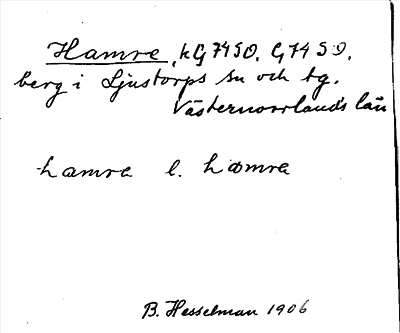 Hamre, kG 74 SO. G 74 SO.
berg i Ljustorps sn och tg.
Västernorrlands län
hamra l. hamra
B. Hesselman 1906